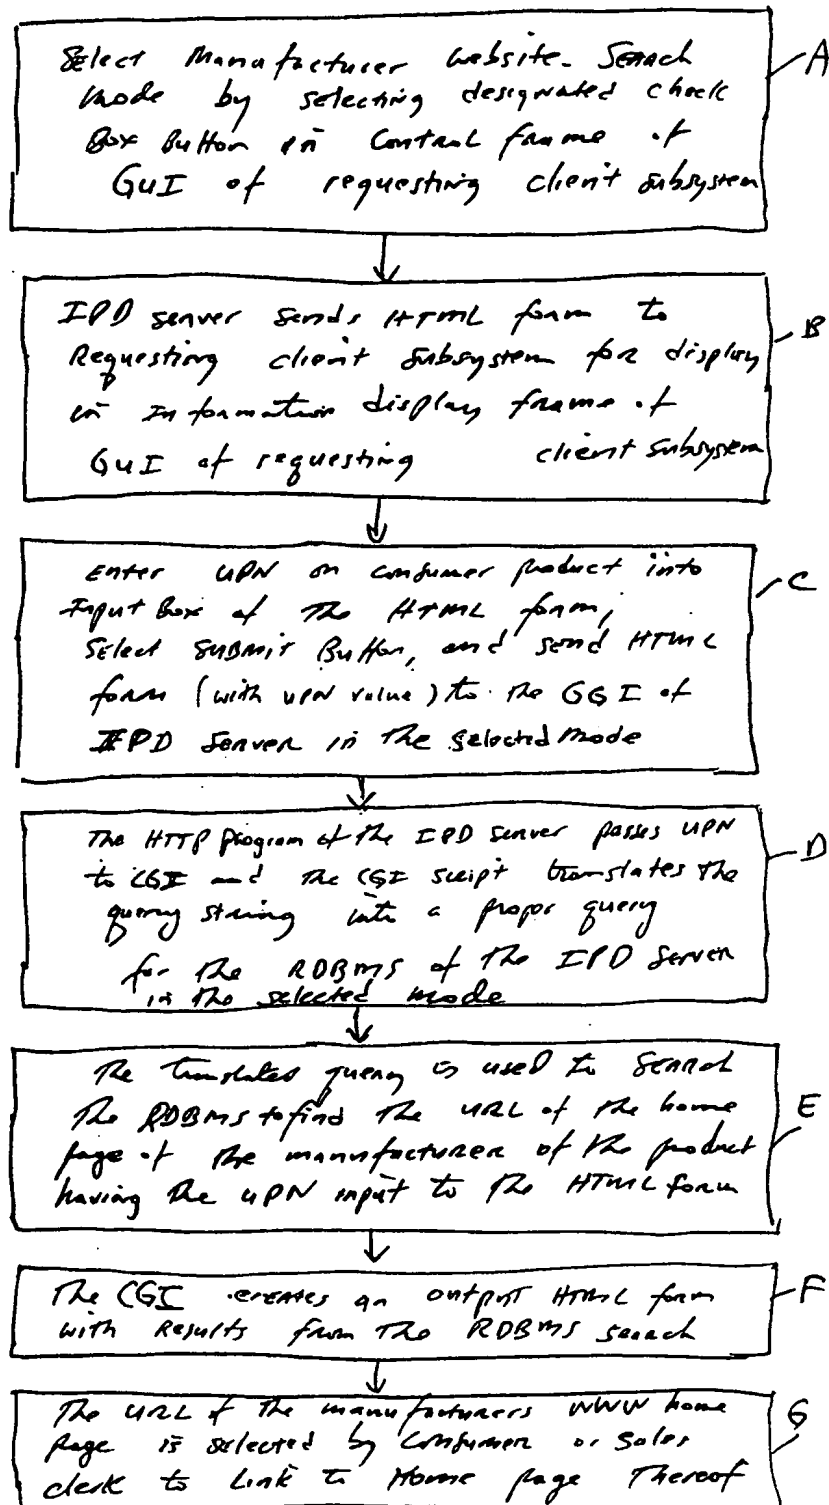 Select Manufacturer Website Search
Mode by selecting designated check
Box Button in Control frame of
GUI of requesting client subsystem
A
IPD server sends HTML form to
Requesting client subsystem for display
in Information display frame of
GUI of requesting client subsystem
B
Enter UPN on consumer product into
Input Box of the HTML form,
Select SUBMIT Button, and send HTML
form (with UPN value) to the GGI of
IPD Server in the selected mode
C
The HTTP program of the IPD server passes UPN
to CGI and the CGI script translates the
query string into a proper query
for the RDBMS of the IPD Server
in the selected mode
D
The translated query is used to Search
the RDBMS to find the URL of the home
page of the manufacturer of the product
having the UPN input to the HTML form
E
The CGI creates an output HTML form
with Results from the RDBMS search
F
The URL of the manufacturers WWW home
Page is selected by Consumer or Sales
clerk to Link to Home page Thereof
G